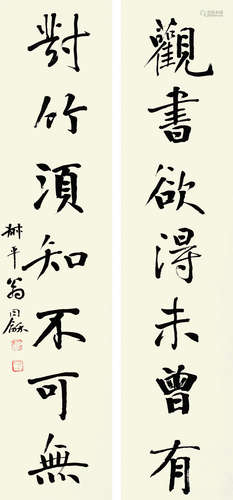 觀書欲得未曾有
對竹須知不可無
叔平翁同龢